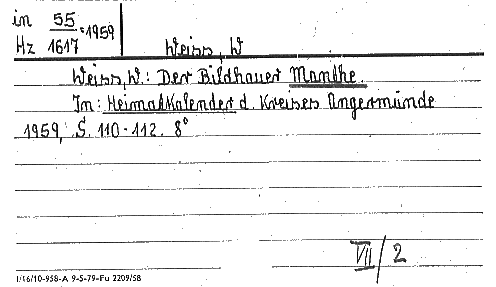 in 55 : 1959
Hz 1617
Weiss, W
Weiss, W.: Der Bildhauer Manthe.
In: Heimatkalender d. Kreises Angermünde
1959, S. 110-112. 8°
VII/2
I/16/10-958-A 9-5-79-Fu 2209/58